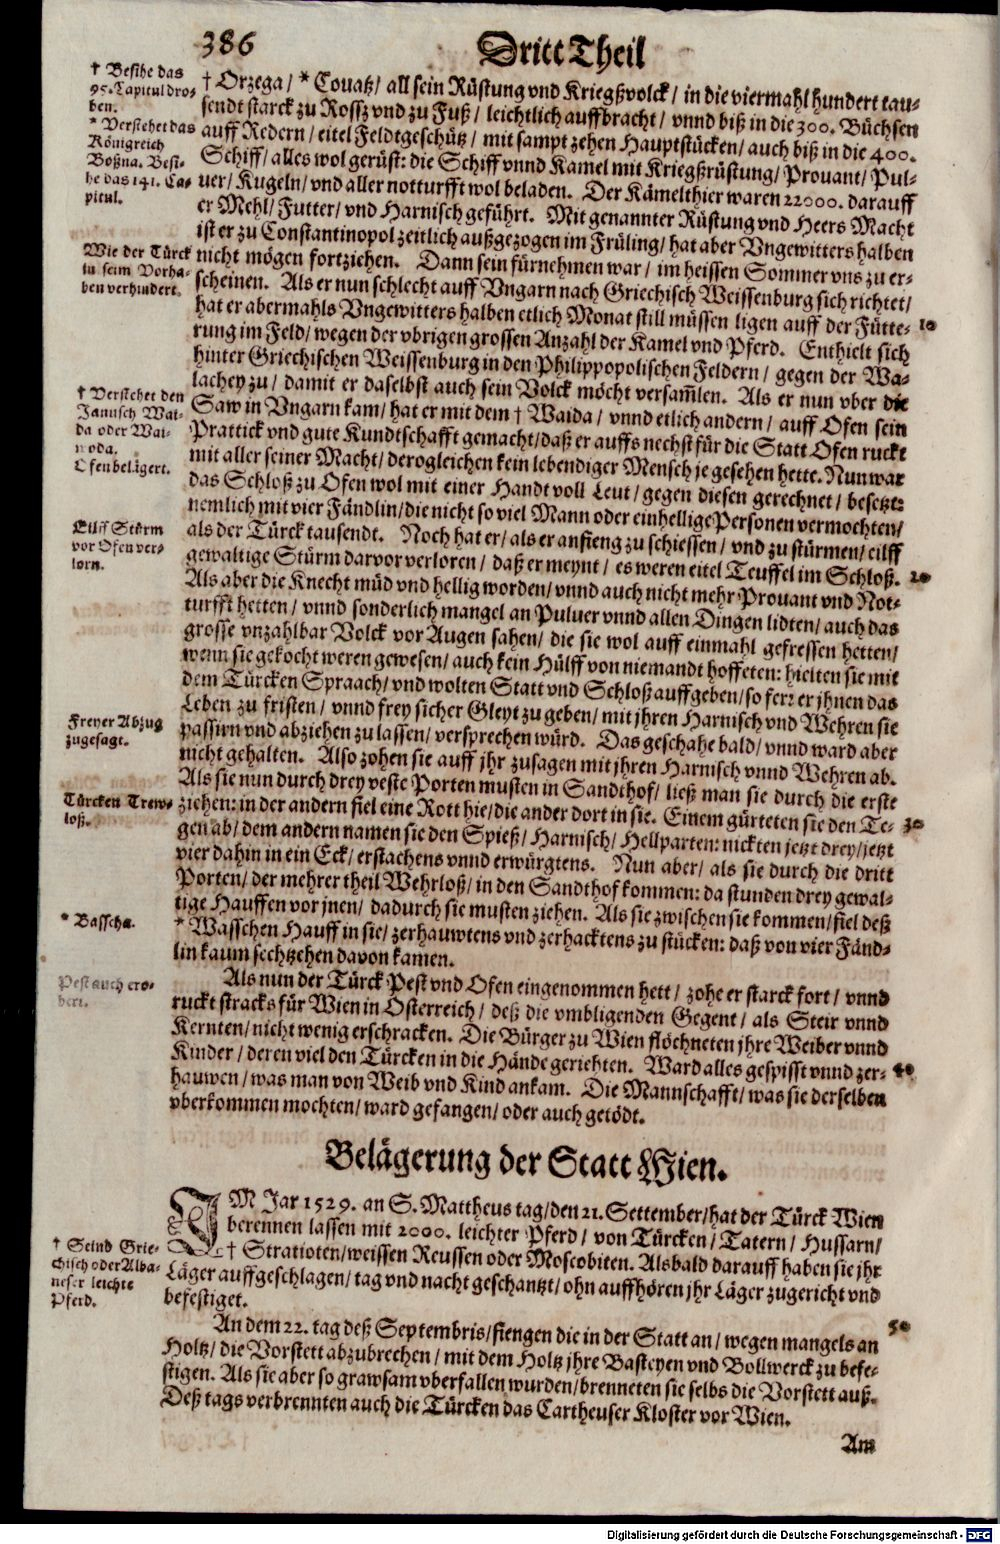 386
Dritt Theil
† Besihe das
95. Capitul dro-
ben.
* Verstehet das
Königreich
Boßna. Besi-
he das 141. Ca-
pitul.
† Orzega / * Covatz / all sein Rüstung vnd Kriegßvolck / in die viermahl hundert tau-
sendt starck zu Rossz vnd zu Fuß / leichtlich auffbracht / vnnd biß in die 300. Büchsen
auff Redern / eitel Feldtgeschütz / mit sampt zehen Hauptstücken / auch biß in die 400.
Schiff / alles wol gerüst: die Schiff vnnd Kamel mit Kriegßrüstung / Provant / Pul-
uer / Kugeln / vnd aller notturfft wol beladen. Der Kämelthier waren 22000. darauff
er Mehl / Futter / vnd Harnisch geführt. Mit genannter Rüstung vnd Heers Macht
ist er zu Constantinopol zeitlich außgezogen im Früling / hat aber Vngewitters halben
Wie der Türck
in seim Vorha-
ben verhindert.
nicht mögen fortziehen. Dann sein fürnehmen war / im heissen Sommer vns zu er-
scheinen. Als er nun schlecht auff Vngarn nach Griechisch Weissenburg sich richtet /
hat er abermahls Vngewitters halben etlich Monat still müssen ligen auff der Fütte-
10
rung im Feld / wegen der vbrigen grossen Anzahl der Kamel vnd Pferd. Enthielt sich
hinter Griechischen Weissenburg in den Philippopolischen Feldern / gegen der Wa-
lachey zu / damit er daselbst auch sein Volck möcht versam̃len. Als er nun vber die
† Verstehet den
Janusch Wai-
da oder Wai-
voda.
Ofen belägert.
Saw in Vngarn kam / hat er mit dem † Waida / vnnd etlich andern / auff Ofen sein
Prattick vnd gute Kundtschafft gemacht / daß er auffs nechst für die Statt Ofen ruckt
mit aller seiner Macht / derogleichen kein lebendiger Mensch je gesehen hette. Nun war
das Schloß zu Ofen wol mit einer Handt voll Leut / gegen diesen gerechnet / besetzt:
nemlich mit vier Fändlin / die nicht so viel Mann oder einhellige Personen vermochten /
Eilff Stürm
vor Ofen ver-
lorn.
als der Türck tausendt. Noch hat er / als er anfieng zu schiessen / vnd zu stürmen / eilff
gewaltige Stürm darvor verloren / daß er meynt / es weren eitel Teuffel im Schloß.
20
Als aber die Knecht müd vnd hellig worden / vnnd auch nicht mehr Provant vnd Not-
turfft hetten / vnnd sonderlich mangel an Puluer vnnd allen Dingen lidten / auch das
grosse vnzahlbar Volck vor Augen sahen / die sie wol auff einmahl gefressen hetten /
wenn sie gekocht weren gewesen / auch kein Hülff von niemandt hoffeten: hielten sie mit
dem Türcken Spraach / vnd wolten Statt vnd Schloß auffgeben / so ferr er jhnen das
Leben zu fristen / vnnd frey sicher Gleyt zu geben / mit jhren Harnisch vnd Wehren sie
Freyer Abzug
zugesagt.
passirn vnd abziehen zu lassen / versprechen würd. Das geschahe bald / vnnd ward aber
nicht gehalten. Also zohen sie auff jhr zusagen mit jhren Harnisch vnnd Wehren ab.
Als sie nun durch drey veste Porten musten in Sandthof / ließ man sie durch die erste
Türcken Trew-
loß.
ziehen: in der andern fiel eine Rott hie / die ander dort in sie. Einem gürteten sie den De-
30
gen ab / dem andern namen sie den Spieß / Harnisch / Hellparten: nickten jetzt drey / jetzt
vier dahin in ein Eck / erstachens vnnd erwürgtens. Nun aber / als sie durch die dritt
Porten / der mehrer theil Wehrloß / in den Sandthof kommen: da stunden drey gewal-
tige Hauffen vor jnen / dadurch sie musten ziehen. Als sie zwischen sie kommen / fiel deß
* Bassche.
* Wasschen Hauff in sie / zerhauwtens vnd zerhacktens zu stücken: daß von vier Fänd-
lin kaum sechtzehen davon kamen.
Pest auch ero-
bert.
Als nun der Türck Pest vnd Ofen eingenommen hett / zohe er starck fort / vnnd
ruckt stracks für Wien in Osterreich / deß die vmbligenden Gegent / als Steir vnnd
Kernten / nicht wenig erschracken. Die Bürger zu Wien flöchneten jhre Weiber vnnd
Kinder / deren viel den Türcken in die Hände geriehten. Ward alles gespisst vnnd zer-
40
hauwen / was man von Weib vnd Kind ankam. Die Mannschafft / was sie derselben
vberkommen mochten / ward gefangen / oder auch getödt.
Belägerung der Statt Wien.
IM Jar 1529. an S. Mattheus tag / den 21. Settember / hat der Türck Wien
berennen lassen mit 2000. leichter Pferd / von Türcken / Tatern / Hussarn /
† Seind Grie-
chisch oder Alba-
neser leichte
Pferd.
† Stratioten / weissen Reussen oder Moscobiten. Alsbald darauff haben sie jhr
Läger auffgeschlagen / tag vnd nacht geschantzt / ohn auffhören jhr Läger zugericht vnd
befestiget.
An dem 22. tag deß Septembris / fiengen die in der Statt an / wegen mangels an
50
Holtz / die Vorstett abzubrechen / mit dem Holtz jhre Basteyen vnd Bollwerck zu befe-
stigen. Als sie aber so grawsam vberfallen wurden / brenneten sie selbs die Vorstett auß.
Deß tags verbrennten auch die Türcken das Cartheuser Kloster vor Wien.
Am
Digitalisierung gefördert durch die Deutsche Forschungsgemeinschaft - DFG